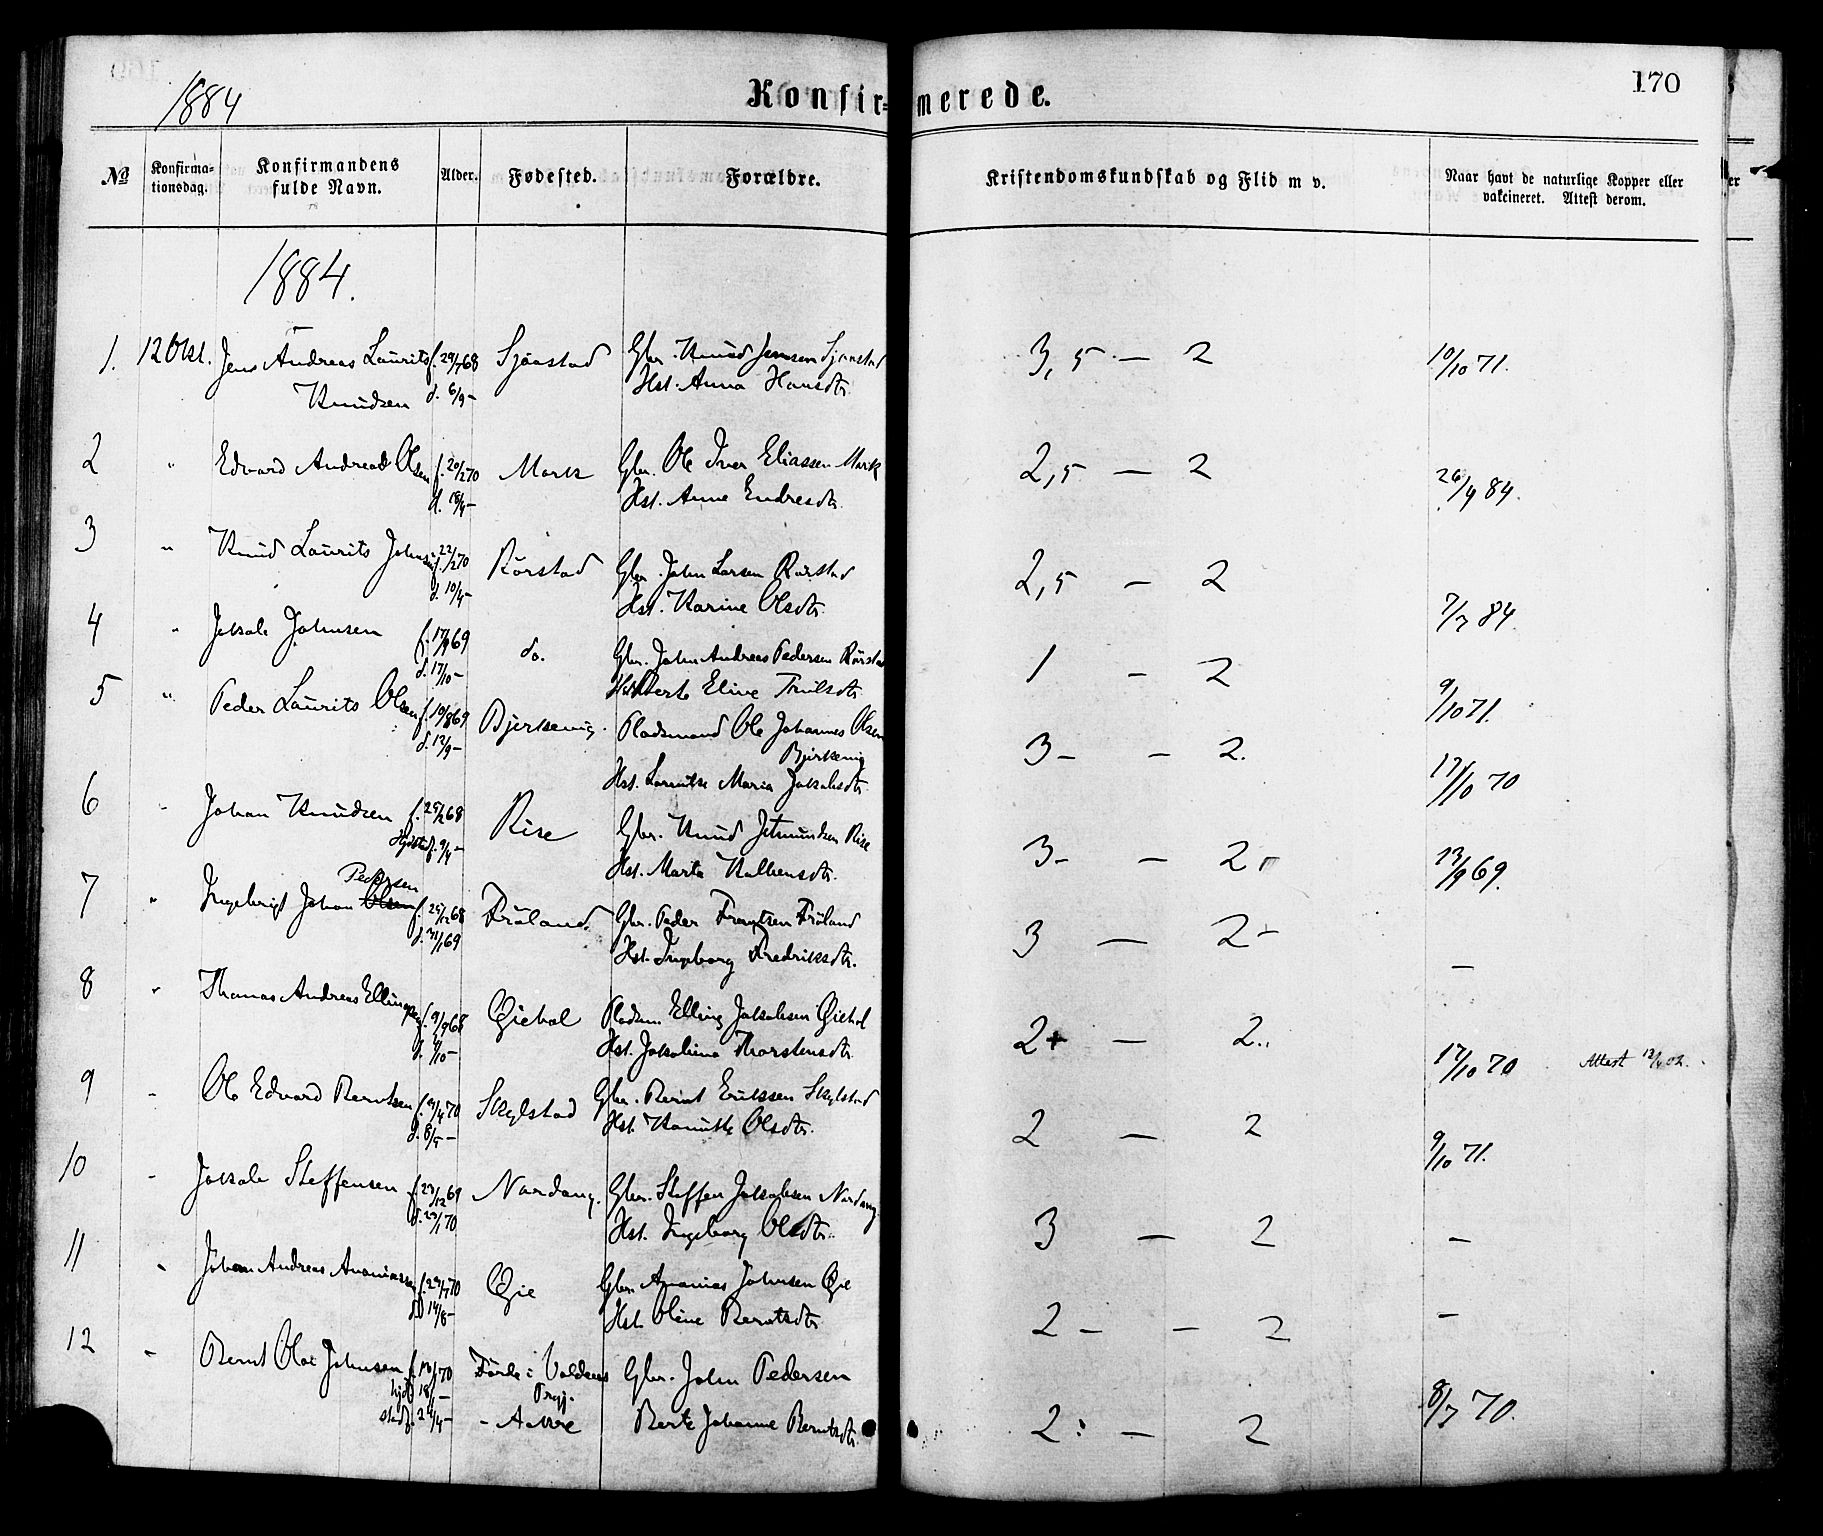 1884
Konfir=merede.
170
No
Konfirma-
tionsdag.
Konfirmandens
fulde Navn.
Alder.
Fødested.
Forældre.
Kristendomskundskab og Flid m v.
Naar havt de naturlige Kopper eller
vakcineret. Attest derom.
1884.
1. 12 Okt. Jens Andreas Laurits f. 29/7 68 Sjåastad Gbr. Knud Jensen Sjåastad 3,5 — 2 10/10 71.
Knudsen d. 6/9 - Hst. Anna Hansdtr.
2 " Edvard Andreas Olsen f. 20/2 70 Mork Gbr. Ole Iver Eliassen Mork 2,5 — 2 26/9 84.
d. 18/4 - Hst. Anne Endresdtr.
3 " Knud Laurits Johnsen f. 22/2 70 Rörstad Gbr. John Larsen Rörstad 2,5 — 2 7/7 84.
d. 10/4 - Hst. Karine Olsdtr.
4 " Jakob Johnsen f. 17/9 69 do. Gbr. John Andreas Pedersen Rörstad 1 — 2 9/10 71.
d. 17/10 - Hst. Berte Eline Trulsdtr.
5 " Peder Laurits Olsen f. 10/8 69 Bjerkevig. Pladsmand Ole Johannes Olsen 3- — 2. 17/10 70
d. 12/9 - Bjerkevig
Hst. Maria Jakobsdtr.
6 " Johan Knudsen f. 25/2 68 Rise Gbr. Knud Jetmundsen Rise 3- — 2 13/9 69.
d. 9/4 - Hst. Marta Kolbensdtr.
Pedersen
7 " Ingebrigt Johan Olsen f. 25/12 68 Fröland. Gbr. Peder Fröland 3 — 2- —
d. 31/1 69 Hst. Ingeborg Fredriksdtr.
8 " Thomas Andreas Ellingsen f. 9/9 68 Øiehol Pladsm. Elling Jakobsen Øiehol 2+ — 2.. 17/10 70 Attest
Hst. Jakobina Thorstensdtr.
9 " Ole Edvard Berntsen 70 Skylstad Gbr. Bernt Erikssen Skylstad 2 — 2 9/10 71.
d. 8/5 - Hst. Olsdtr.
10 " Jakob Steffensen f. 23/12 69 Nordang. Gbr. Steffen Jakobsen Nordang 3 — 2 —
d. 23/1 70 Hst. Ingeborg Olsdtr.
11 " Johan Andreas Ananiassen f. 29/7 70 Øie Gbr. Ananias Johnsen Øie 2- — 2 —
d. 14/8 - Hst. Oline Berntsdtr.
12 " Bernt Olai Johnsen Förde i Voldens Gbr. John Pedersen 2: — 2 8/7 70.
Prgj.
stadf. 24/4 - - Aakre Berte Johanne Berntsdtr.